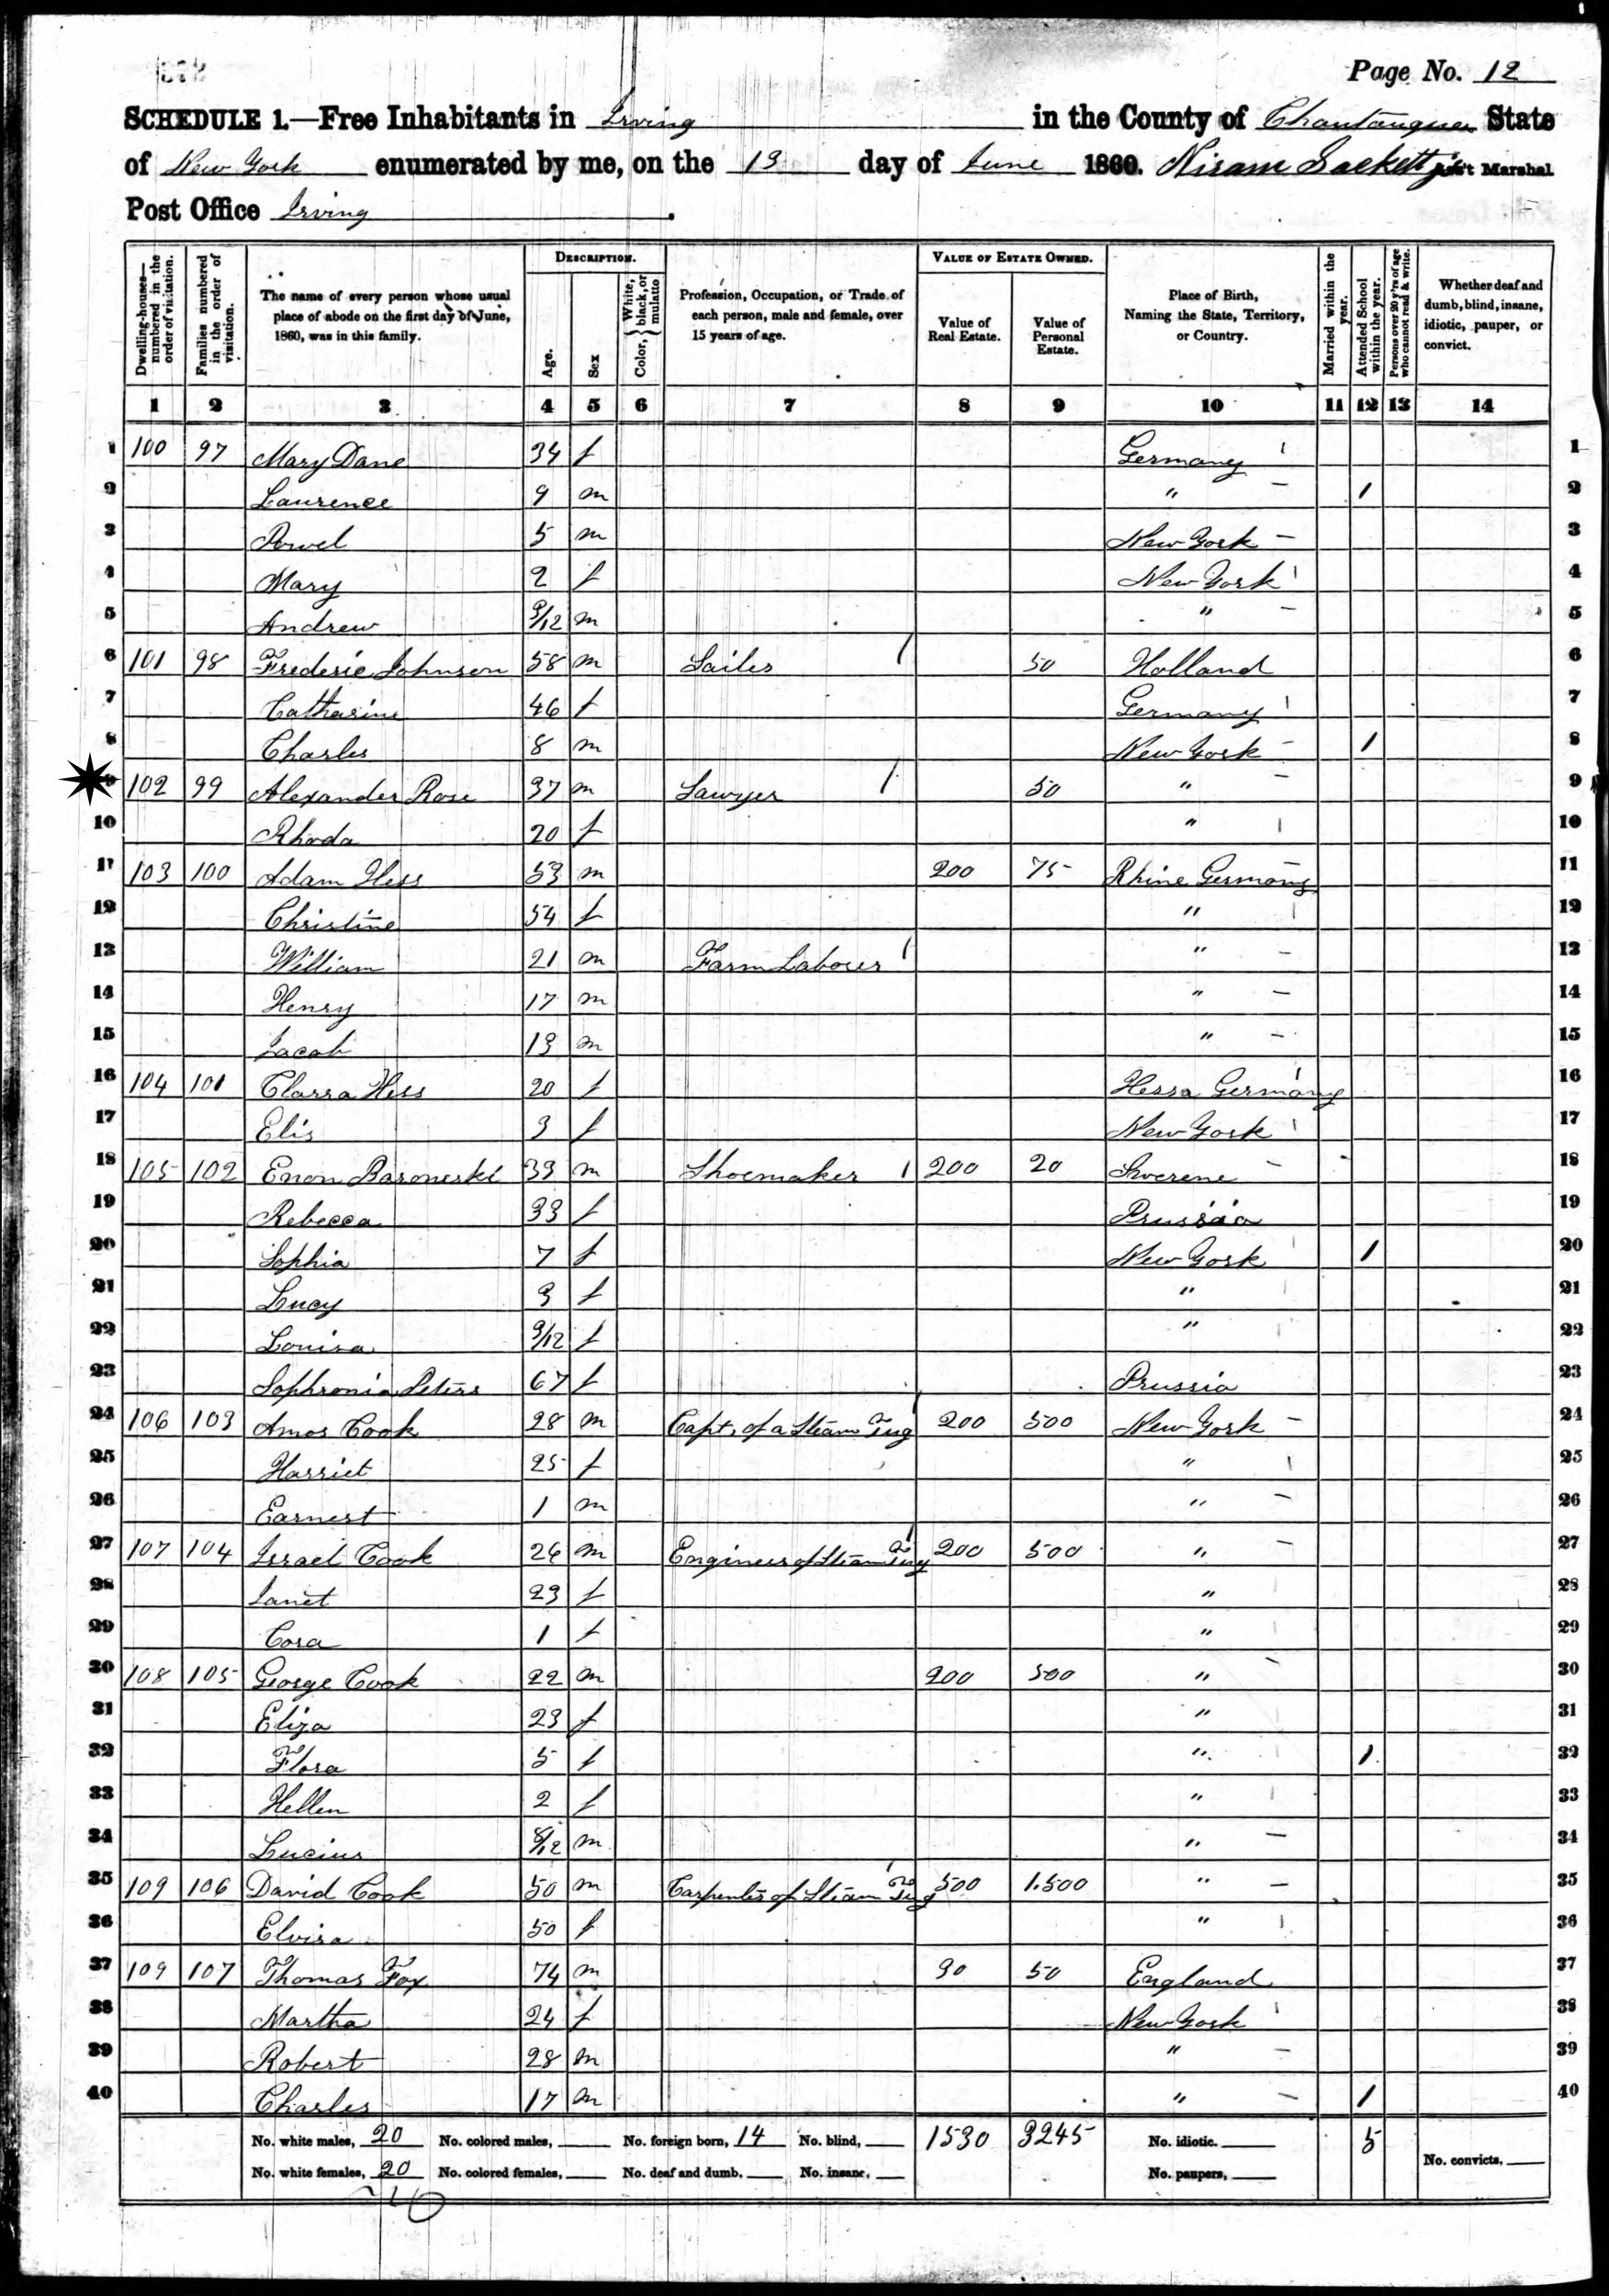 Page No. 12
SCHEDULE 1.—Free Inhabitants in Irving in the County of Chautauqua State
of New York enumerated by me, on the 13 day of June 1860. Hiram Sackett Jr. Ass't Marshal
Post Office Irving.
DESCRIPTION. VALUE OF ESTATE OWNED.
Dwelling-houses—numbered in the order of visitation. Families numbered in the order of visitation. The name of every person whose usual place of abode on the first day of June, 1860, was in this family. Age. Sex Color, {White, black, or mulatto Profession, Occupation, or Trade of each person, male and female, over 15 years of age. Value of Real Estate. Value of Personal Estate. Place of Birth, Naming the State, Territory, or Country. Married within the year. Attended School within the year. Persons over 20 y'rs of age who cannot read & write. Whether deaf and dumb, blind, insane, idiotic, pauper, or convict.
1 2 3 4 5 6 7 8 9 10 11 12 13 14
1 100 97 Mary Dane 34 f Germany 1
2 Laurence 9 m " - / 2
3 Powel 5 m New York - 3
4 Mary 2 f New York 4
5 Andrew 9/12 m " - 5
6 101 98 Frederic Johnson 58 m Sailer 50 Holland 6
7 Catharine 46 f Germany 7
8 Charles 8 m New York - / 8
9 102 99 Alexander Rose 37 m Sawyer 50 " - 9
10 Rhoda 20 f " 10
11 103 100 Adam Hess 53 m 200 75 Rhine Germany 11
12 Christine 54 f " 12
13 William 21 m Farm Laborer " - 13
14 Henry 17 m " - 14
15 Jacob 13 m " - 15
16 104 101 Clarra Hess 20 f Hessa Germany 16
17 Elis 3 f New York 17
18 105 102 Enon Baroneski 33 m Shoemaker 200 20 - 18
19 Rebecca 33 f Prussia 19
20 Sophia 7 f New York / 20
21 Lucy 3 f " 21
22 Louisa 9/12 f " 22
23 Sophronia Peters 67 f Prussia 23
24 106 103 Amos Cook 28 m Capt. of a Steam Tug 200 500 New York - 24
25 Harriet 25 f " 25
26 Earnest 1 m " - 26
27 107 104 Israel Cook 26 m Engineer of Steam Tug 200 500 " - 27
28 Janet 23 f " 28
29 Cora 1 f " 29
30 108 105 George Cook 22 m 200 500 " - 30
31 Eliza 23 f " 31
32 Flora 5 f " / 32
33 Hellen 2 f " 33
34 Lucius 8/12 m " - 34
35 109 106 David Cook 50 m Carpenter of Steam Tug 500 1.500 " - 35
36 Elvira 50 f " 36
37 109 107 Thomas Fox 74 m 30 50 England 37
38 Martha 24 f New York 38
39 Robert 28 m " - 39
40 Charles 17 m " - / 40
No. white males, 20 No. colored males, No. foreign born, 14 No. blind, 1530 3245 No. idiotic. 5 No. convicts,
No. white females, 20 No. colored females, No. deaf and dumb, No. insane, No. paupers,